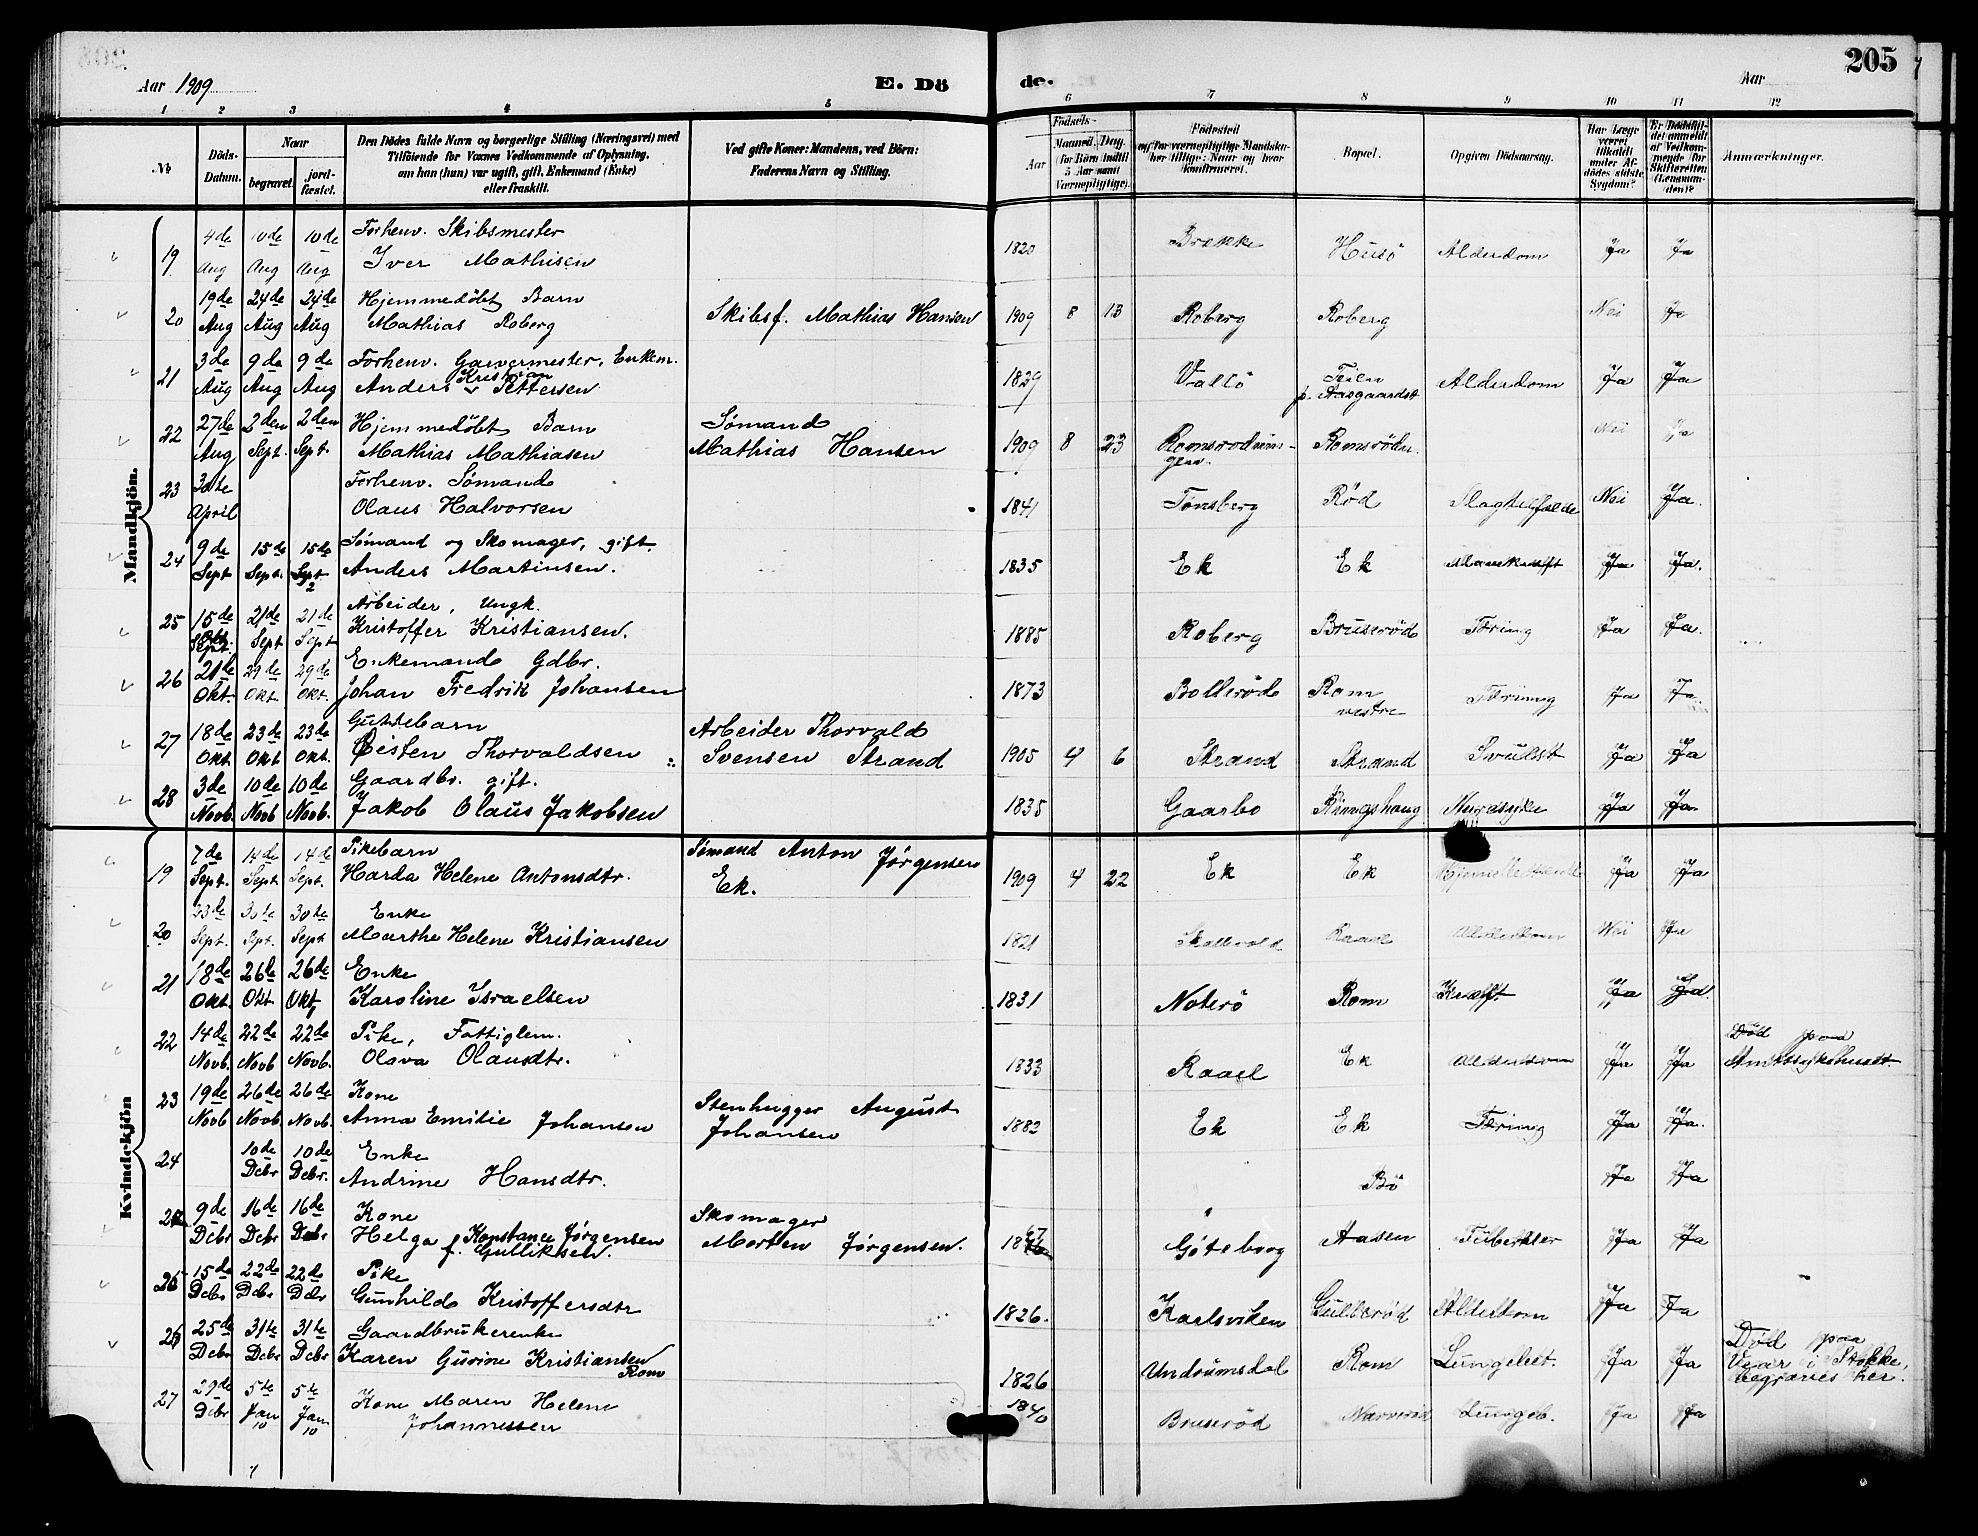 205
Aar 1909
E. Dö de.
Aar
1 2 3 4 5 6 7 8 9 10 11 12
№
Döds-Datum.
Naar
begravet.
jordfæstet.
Den Dödes fulde Navn og borgerlige Stilling (Næringsvei) med
Tilföiende for Voxnes Vedkommende af Oplysning,
om han (hun) var ugift, gift, Enkemand (Enke)
eller fraskilt.
Ved gifte Koner: Mandens, ved Börn:
Faderens Navn og Stilling.
Födsels-
Aar
Maaned Dag
(for Börn indtil
5 Aar samt
Værnepligtige).
Födested
og for værnepligtige Mandskaber tillige: Naar og hvor
konfirmeret.
Bopæl.
Opgiven Dödsaarsag.
Har Læge
været
tilkaldt
under Afdödes sidste
Sygdom?
Er Dödsfaldet anmeldt
af Vedkommende for
Skifteretten
(Lensmanden)?
Anmærkninger.
Mandkjön.
19 4de Aug 10de Aug 10de Aug Forhenv. Skibsmester
Iver Mathisen 1820 Brække Husö Alderdom Ja Ja
20 19de Aug 24de Aug 24de Aug Hjemmedöbt Barn
Mathias Roberg Skibsf. Mathias Hansen 1909 8 13 Roberg Roberg Nei Ja
21 3de Aug 9de Aug 9de Aug Forhenv. Garvermester, Enkem.
Anders Kristian Pettersen 1829 Vallö p. Aasgaardst Alderdom Ja Ja
22 27de Aug 2den Sept. 2den Sept. Hjemmedöbt Barn
Mathias Mathiasen Sømand
Mathias Hansen 1909 8 23 Romsrödn. Nei Ja
23 30te April Forhenv. Sømand
Olaus Halvorsen 1841 Tønsberg Rød Slagtilfælde Nei Ja.
24 9de Sept 15de Sept. 15de Sept Sømand og Skomager, gift.
Anders Martinsen. 1835 Ek Ek Ja Ja.
25 15de Sept. 21de Sept 21de Sept Arbeider, Ungk.
Kristoffer Kristiansen. 1885 Roberg Bruserød Tæring Ja Ja.
26 21de Okt. 29de Okt 29de Okt. Enkemand Gdbr.
Johan Fredrik Johansen 1873 Bollerød Rom vestre Tæring Ja Ja.
27 18de Okt 23de Okt 23de Okt. Guttebarn
Eisten Thorvaldsen Arbeider Thorvald
Svensen Strand 1905 4 6 Strand Strand Svulst Ja Ja
28 3de Novb. 10de Novb 10de Novb. Gaardbr. gift.
Jakob Olaus Jakobsen 1835 Gaarbo Ringshaug Nyresyke Ja Ja.
Kvindekjön
19 7de Sept. 14de Sept. 14de Sept. Pikebarn
Harda Helene Antonsdtr. Sømand Anton Jørgensen
Ek. 1909 4 22 Ek Ek Ja Ja
20 23de Sept. 30te Sept. 30te Sept Enke
Marthe Helene Kristiansen 1821 Skallevold Raael Alderdom Nei Ja
21 18de Okt. 26de Okt. 26de Okt Enke
Karoline Israelsen 1831 Noterö Rom Kræft Ja Ja.
22 14de Novb. 22de Novb 22de Novb. Pike, Fattiglem.
Olava Olausdtr. 1833 Raael Ek Alderdom Ja Ja Död paa
Amtssykehuset.
23 19de Novb 26de Novb 26de Novb. Kone
Anna Emilie Johansen Stenhugger August
Johansen 1882 Ek Ek Tæring Ja Ja.
24 10de Debr 10de Debr. Enke
Andrine Hansdtr. Bö Ja Ja
9de Debr 16de Debr 16de Debr Kone
Helga Konstance Jørgensen
f. Gulliksen. Skomager
Morten Jørgensen. 1867 Göteborg Aasen Tuberkler Ja Ja
25 15de Debr 22de Debr 22de Debr Pike
Gunhild Kristoffersdtr 1826. Karlsviken Gulberød Alderdom Ja Ja
26 25de Debr 31te Debr 31te Debr Gaardbrukerenke
Karen Gurine Kristiansen
Rom 1826 Undrumsdal Rom Lungebet. Ja Ja Död paa
i Stokke,
begraves her.
27 29de Debr 5te Jan 10 5te Jan 10 Kone Maren Helene
Johannessen 1840 Bruserød Narverød Lungeb. Ja Ja